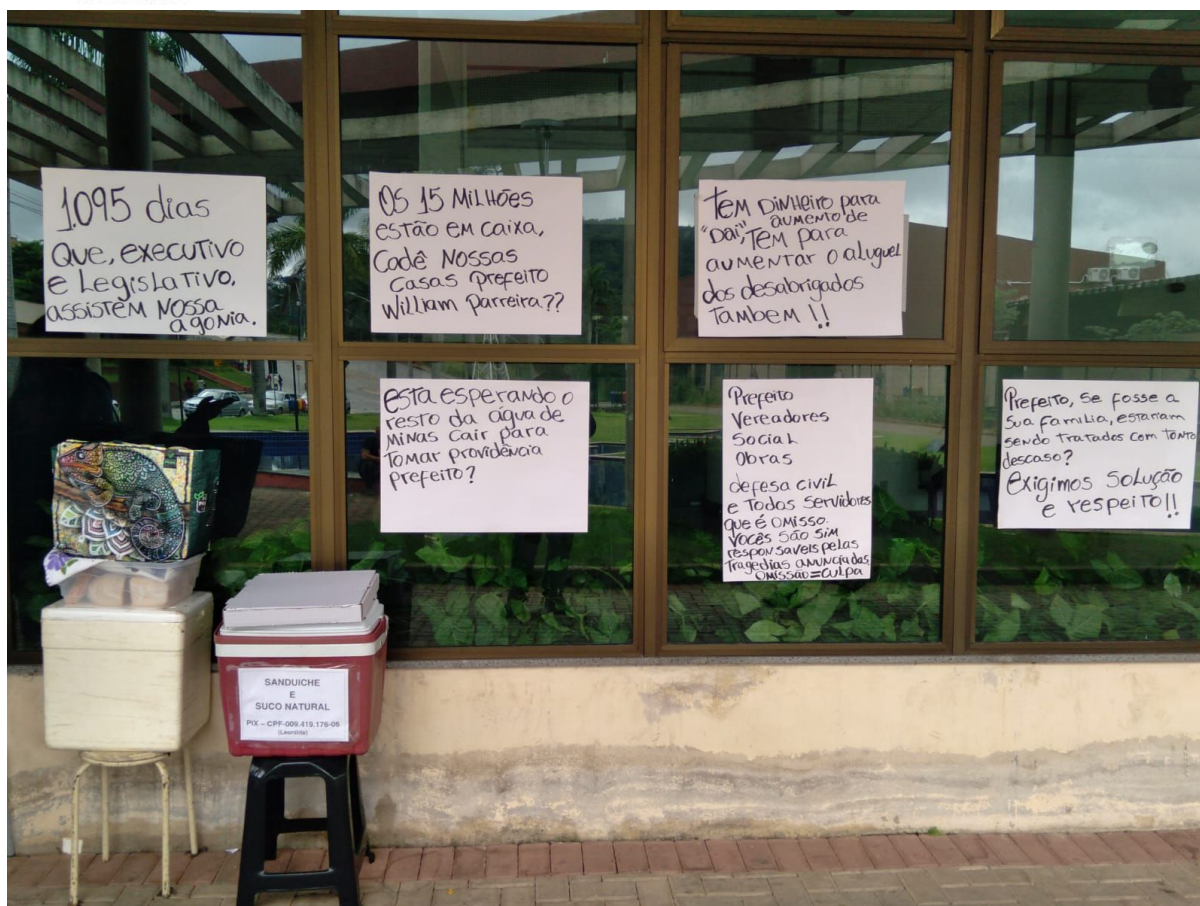 1.095 dias
que, executivo
e Legislativo,
assistem nossa
agonia.
OS 15 MILHÕES
estão em caixa,
Cadê Nossas
casas prefeito
William Parreira??
Tem Dinheiro para
aumento de
"Dai", Tem para
aumentar o aluguel
dos desabrigados
Tambem !!
Esta esperando o
resto da água de
Minas cair para
Tomar providência
prefeito?
Prefeito
Vereadores
Social
Obras
defesa civil
e Todos servidores
que é omisso.
Vocês são sim
responsaveis pelas
Tragedias anunciadas
omissão=culpa
Prefeito, se fosse a
sua familia, estariam
sendo tratados com tanto
descaso?
Exigimos solução
e respeito!!
SANDUICHE
E
SUCO NATURAL
PIX – CPF-009.419.176-06
(Leonilda)